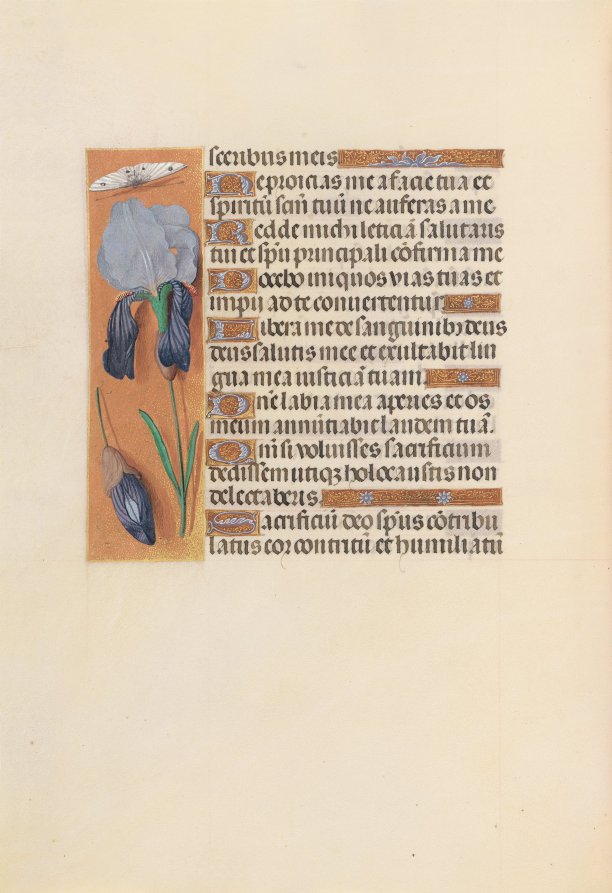 sceribus meis
Ne proicias me a facie tua et
spiritū scm̄ tuū ne auferas a me
Redde michi leticiā salutaris
tui et sp̄u principali cōfirma me
Docebo iniquos vias tuas et
impii ad te conuertentur
Libera me de sanguinibꝫ deus
deus salutis mee et exultabit lin
gua mea iusticiā tuam
Dn̄e labia mea aperies et os
meum annūtiabit laudem tuā.
Qm̄ si voluisses sacrificium
dedissem utiqꝫ holocaustis non
delectaberis
Sacrificiū deo sp̄us cōtribu
latus cor contritū et humiliatū